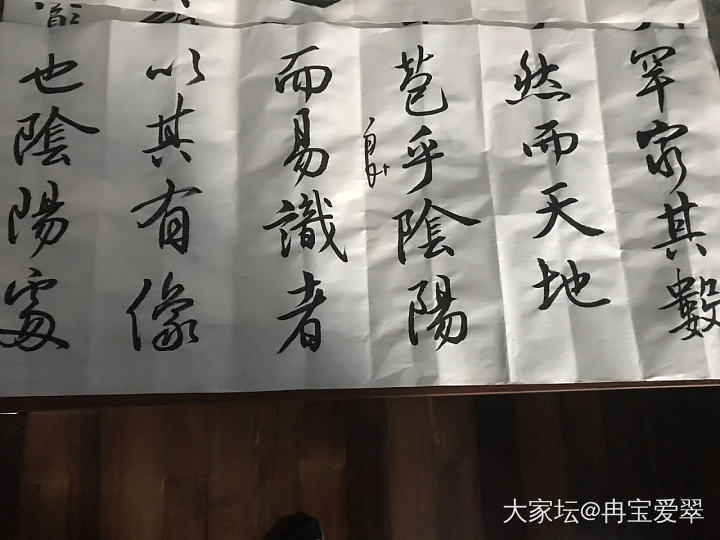 罕窮其數
然而天地
苞乎陰陽
而易識者
以其有像
也陰陽處
大家坛@冉宝爱翠